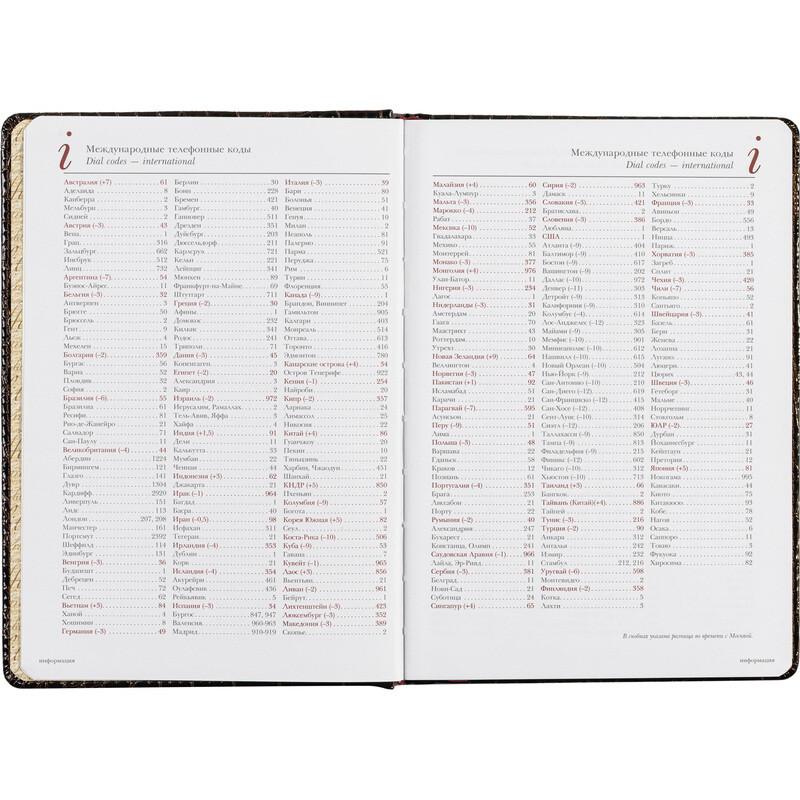 i
Международные телефонные коды
Dial codes — international
Австралия (+7) 61
Аделаида 8
Канберра 2
Мельбурн 3
Сидней 2
Австрия (–3) 43
Вена 1
Грац 316
Зальцбург 662
Инсбрук 512
Линц 732
Аргентина (–7) 54
Буэнос-Айрес 11
Бельгия (–3) 32
Антверпен 3
Брюгге 50
Брюссель 2
Гент 9
Льеж 4
Мехелен 15
Болгария (–2) 359
Бургас 56
Варна 52
Пловдив 32
София 2
Бразилия (–6) 55
Бразилиа 61
Ресифи 81
Рио-де-Жанейро 21
Салвадор 71
Сан-Паулу 11
Великобритания (–4) 44
Абердин 1224
Бирмингем 121
Глазго 141
Дувр 1304
Кардифф 2920
Ливерпуль 151
Лидс 113
Лондон 207, 208
Манчестер 161
Портсмут 2392
Шеффилд 114
Эдинбург 131
Венгрия (–3) 36
Будапешт 1
Дебрецен 52
Печ 72
Сегед 62
Вьетнам (+3) 84
Ханой 4
Хошимин 8
Германия (–3) 49
Берлин 30
Бонн 228
Бремен 421
Гамбург 40
Ганновер 511
Дрезден 351
Дуйсбург 203
Дюссельдорф 211
Карлсруэ 721
Кельн 221
Лейпциг 341
Мюнхен 89
Франкфурт-на-Майне 69
Штутгарт 711
Греция (–2) 30
Афины 1
Домокос 232
Килкис 341
Родос 241
Триполи 71
Дания (–3) 45
Копенгаген 3
Египет (–2) 20
Александрия 3
Каир 2
Израиль (–2) 972
Иерусалим, Рамаллах 2
Тель-Авив, Яффа 3
Хайфа 4
Индия (+1,5) 91
Дели 11
Калькутта 33
Мумбаи 22
Ченнаи 44
Индонезия (+3) 62
Джакарта 21
Ирак (–1) 964
Багдад 1
Басра 40
Иран (–0,5) 98
Исфахан 311
Тегеран 21
Ирландия (–3) 353
Дублин 1
Корк 21
Исландия (–4) 354
Акурейри 461
Оулафсвик 436
Рейкьявик 5
Испания (–3) 34
Бургос 847, 947
Валенсия 960-963
Мадрид 910-919
Италия (–3) 39
Бари 80
Болонья 51
Венеция 41
Генуя 10
Милан 2
Неаполь 81
Палермо 91
Парма 521
Перуджа 75
Рим 6
Турин 11
Флоренция 55
Канада (–9) 1
Брандон, Виннипег 204
Гамильтон 905
Калгари 403
Монреаль 514
Оттава 613
Торонто 416
Эдмонтон 780
Канарские острова (+4) 34
Остров Тенерифе 922
Кения (–1) 254
Найроби 20
Кипр (–2) 357
Ларнака 24
Лимассол 25
Никосия 22
Китай (+4) 86
Гуанчжоу 20
Пекин 10
Тяньцзинь 22
Харбин, Чжаодун 451
Шанхай 21
КНДР (+5) 850
Пхеньян 2
Колумбия (–9) 57
Богота 1
Корея Южная (+5) 82
Сеул 2
Коста-Рика (–10) 506
Куба (–9) 53
Гавана 7
Кувейт (–1) 965
Лаос (+3) 856
Вьентьян 21
Ливан (–2) 961
Бейрут 1
Лихтенштейн (–3) 423
Люксембург (–3) 352
Македония (–3) 389
Скопье 2
информация
Международные телефонные коды
Dial codes — international
i
Малайзия (+4) 60
Куала-Лумпур 3
Мальта (–3) 356
Марокко (–4) 212
Рабат 37
Мексика (–10) 52
Гвадалахара 33
Мехико 55
Монтеррей 81
Монако (–3) 377
Монголия (+4) 976
Улан-Батор 11
Нигерия (–3) 234
Лагос 1
Нидерланды (–3) 31
Амстердам 20
Гаага 70
Маастрихт 43
Роттердам 10
Утрехт 30
Новая Зеландия (+9) 64
Веллингтон 4
Норвегия (–3) 47
Пакистан (+1) 92
Исламабад 51
Карачи 21
Парагвай (–7) 595
Асунсьон 21
Перу (–9) 51
Лима 1
Польша (–3) 48
Варшава 22
Гданьск 58
Краков 12
Познань 61
Португалия (–4) 351
Брага 253
Лиссабон 21
Порту 22
Румыния (–2) 40
Александрия 247
Бухарест 21
Констанца, Олимп 241
Саудовская Аравия (–1) 966
Лайла, Эр-Рияд 11
Сербия (–3) 381
Белград 11
Нови-Сад 21
Суботица 24
Сингапур (+4) 65
Сирия (–2) 963
Дамаск 11
Словакия (–3) 421
Братислава 2
Словения (–3) 386
Любляна 1
США 1
Атланта (–9) 404
Балтимор (–9) 410
Бостон (–9) 617
Вашингтон (–9) 202
Даллас (–10) 972
Денвер (–11) 303
Детройт (–9) 313
Калифорния (–9) 310
Колумбус (–9) 614
Лос-Анджелес (–12) 323
Майами (–9) 305
Мемфис (–10) 901
Миннеаполис (–10) 612
Нашвилл (–10) 615
Новый Орлеан (–10) 504
Нью-Йорк (–9) 212
Сан-Антонио (–10) 210
Сан-Диего (–12) 619
Сан-Франциско (–12) 415
Сан-Хосе (–12) 408
Сент-Луис (–10) 314
Сиэтл (–12) 206
Таллахасси (–9) 850
Тампа (–9) 813
Филадельфия (–9) 215
Цинциннати (–9) 513
Чикаго (–10) 312
Хьюстон (–10) 713
Таиланд (+3) 66
Бангкок 2
Тайвань (Китай)(+4) 886
Тайпей 2
Тунис (–3) 216
Турция (–2) 90
Анкара 312
Анталья 242
Измир 232
Стамбул 212, 216
Уругвай (–6) 598
Монтевидео 2
Финляндия (–2) 358
Котка 5
Лахти 3
Турку 2
Хельсинки 9
Франция (–3) 33
Авиньон 49
Бордо 556
Версаль 13
Ницца 493
Париж 1
Хорватия (–3) 385
Загреб 1
Сплит 21
Чехия (–3) 420
Чили (–7) 56
Копьяпо 52
Сантьяго 2
Швейцария (–3) 41
Базель 61
Берн 31
Женева 22
Лозанна 21
Лугано 91
Люцерн 41
Цюрих 43, 44
Швеция (–3) 46
Гетеборг 31
Мальме 40
Норрчепинг 11
Стокгольм 8
ЮАР (–2) 27
Дурбан 31
Йоханнесбург 11
Кейптаун 21
Претория 12
Япония (+5) 81
Иокогама 995
Кавасаки 44
Киото 75
Китакюсю 93
Кобе 78
Нагоя 52
Осака 6
Саппоро 11
Токио 3
Фукуока 92
Хиросима 82
В скобках указана разница во времени с Москвой.
информация